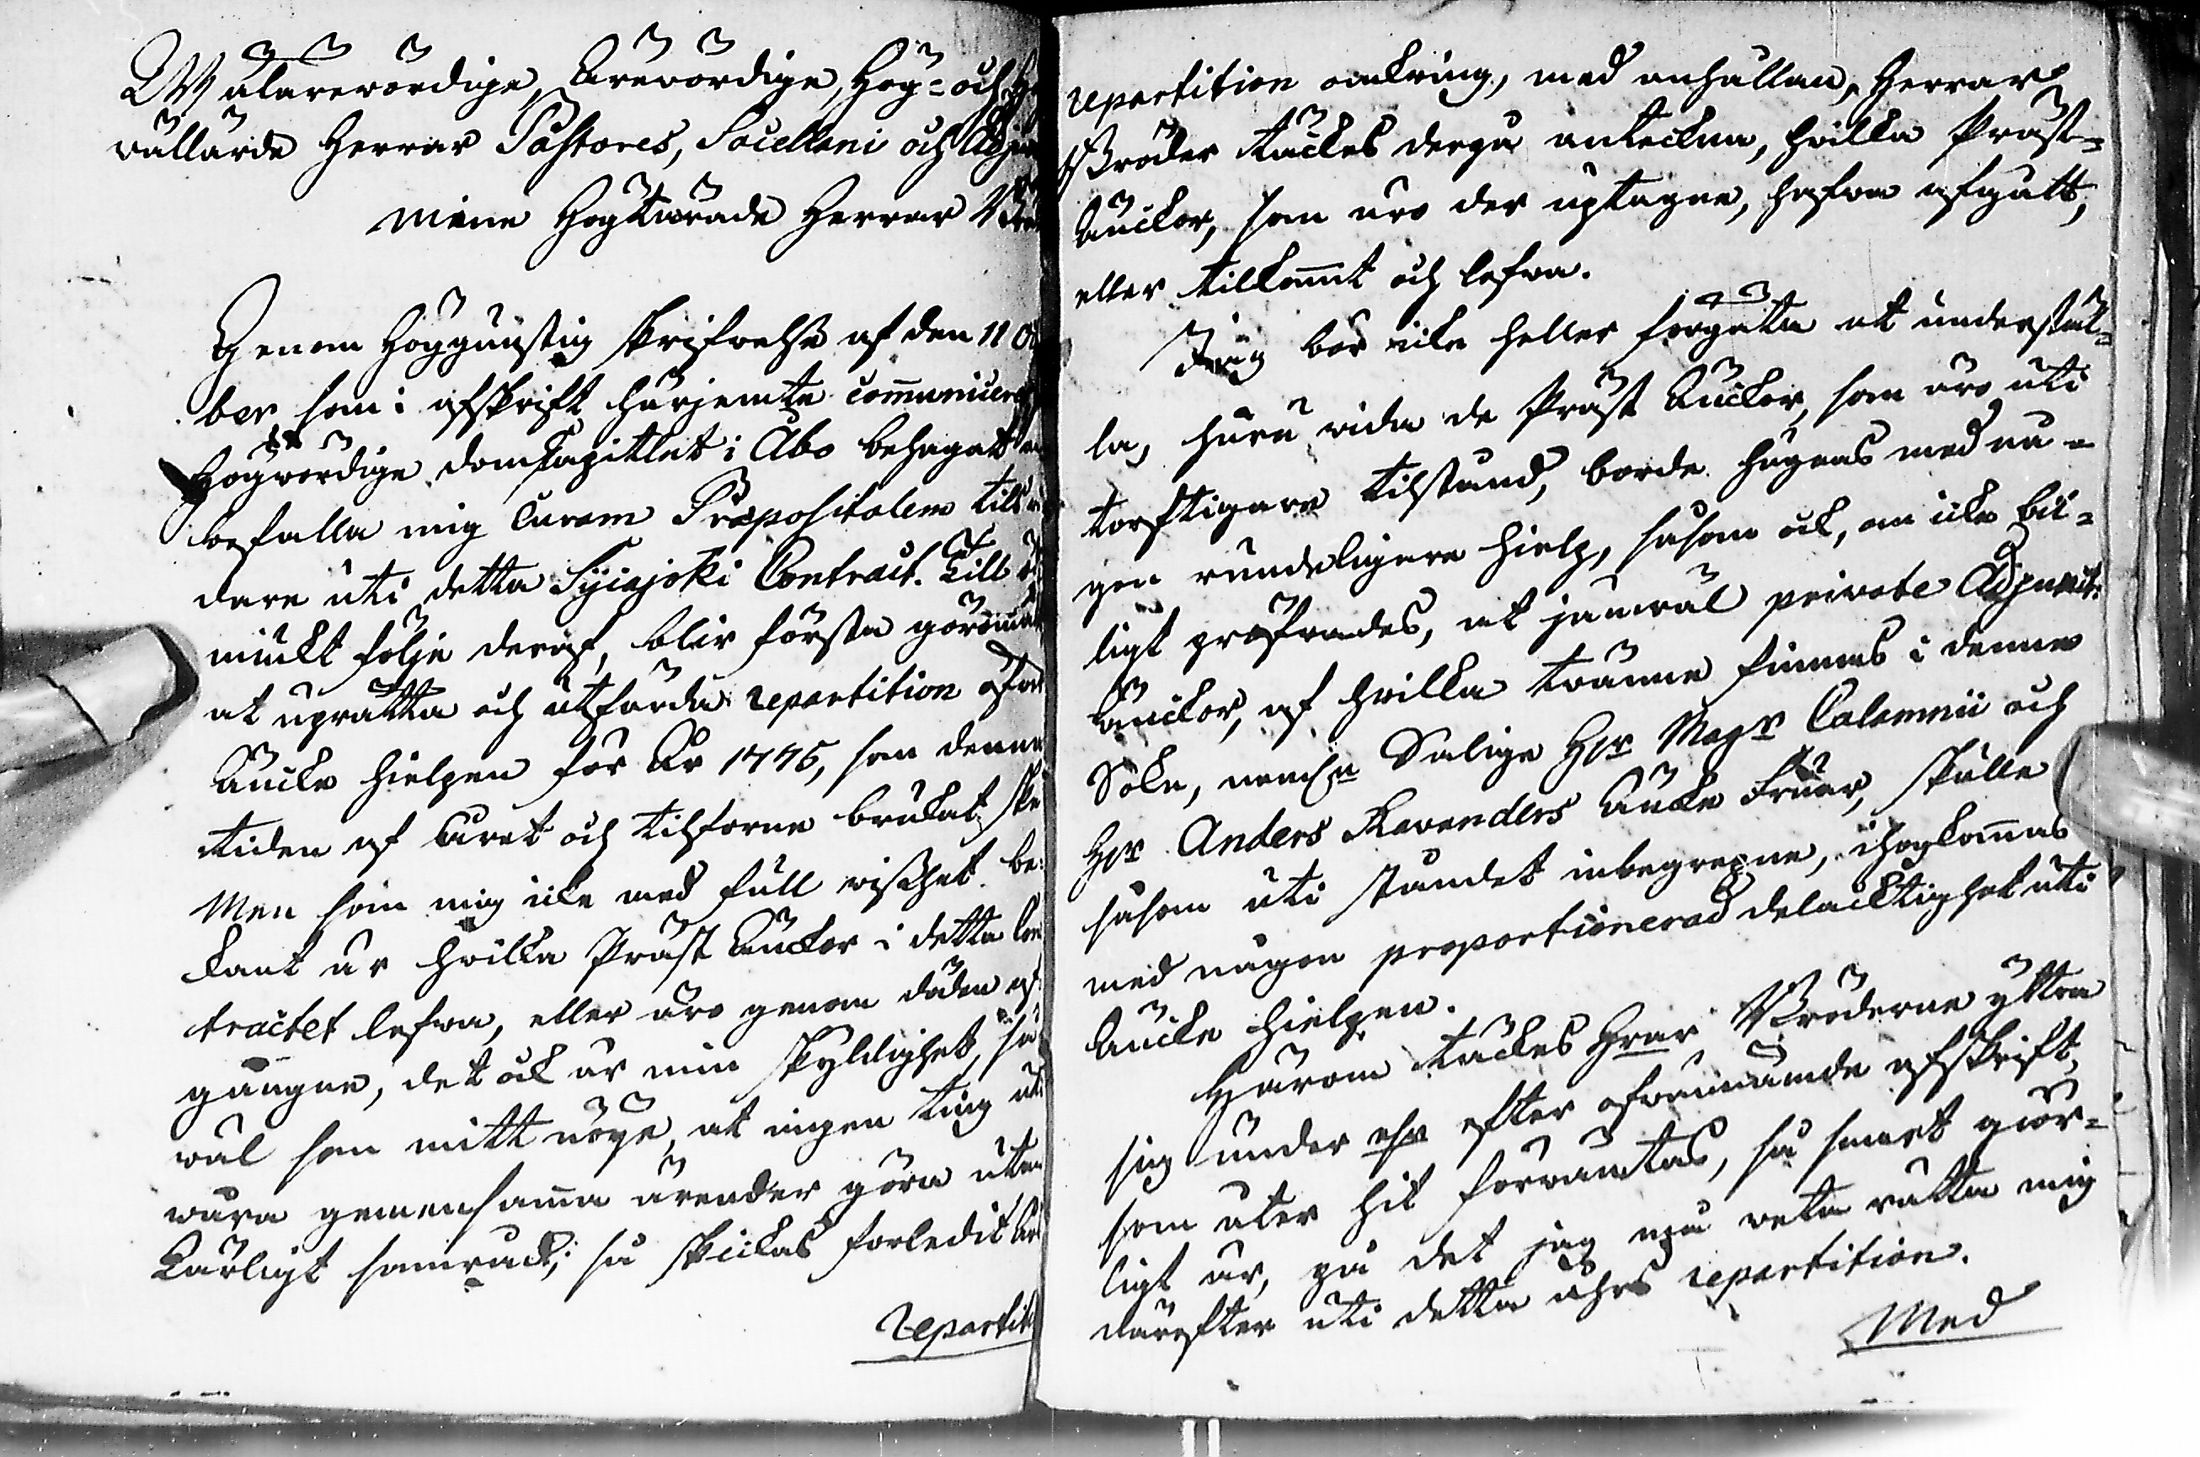 Wälärewördige, Ärewördige, Hög- och
wällärde Herrar Pastores, Sacellani och Adju
mine Högtärade Herrar
Genom Höggunstig skrifvelse af den 11 Oc
ber som i afskrift härjemte communiceras
Högwördige Domkapitlet i Åbo behagat
befalla mig Curam Præpositalem till
dare uti detta Pyiajoki Contract. Till
mückt följe deraf, blir första göromål
at uprätta och utfärda repartition öfwer
Äncke hielpen för År 1775, som denne
tiden af året och tilförne brukat ske
Men som mig icke med full wisshet be-
kant är hvilka Präst Änckor i detta Con
tractet lefwa, eller äro genom döden af-
gångne, det ock är min skyldighet, så
wäl som mitt nöye, at ingen ting uti
wåra gemensamma ärender göra utan
kärligt samråd; så skickas förledit års
repartiti
repartition omkring, med anhållan, Herrar
Bröder täckes derpå anteckna, hvilka Präst-
Änckor, som äro der uptagne, hafwa afgått,
eller tilkommit och lefwa.
Jag bör icke heller förgäta at understäl-
la, huru vida de Präst Änckor, som äro uti
torftigare tilstånd, borde hugnas med nå-
gon rundeligare hielp, såsom ock, om icke bil-
ligt pröfwades, at jämwäl private Adjuncts
Änckor, af hvilka tvänne finnas i denne
Sokn, neml:n Salige Hr Mag:r Calamnii och
Hr Anders Kavanders Äncke Fruar, skulle
såsom uti ståndet inbegrepne, ihogkommas
med någon proportionerad delacktighet uti
Äncke hielpen.
Härom täckes Hrar Bröderne yttra
sig under eller efter ofwannämnde afskrift,
som åter hit förwäntas, så snart giör-
ligt är, på det jag må weta rätta mig
därefter uti detta åhrs repartition.
Med